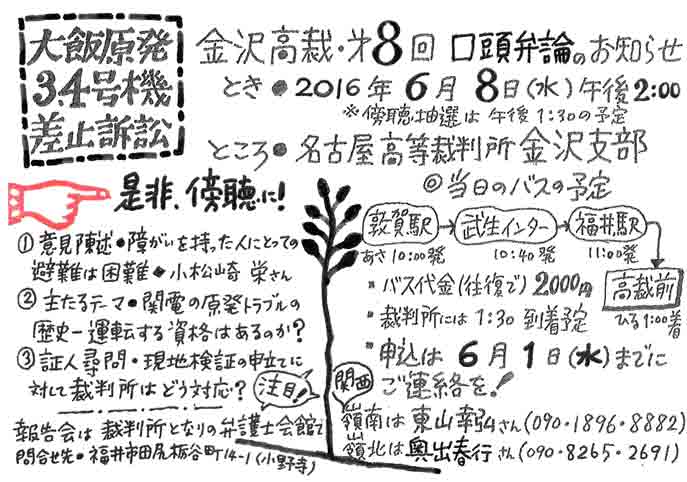 大飯原発
3,4号機
差止訴訟
金沢高裁・第8回 口頭弁論のお知らせ
とき●2016年6月8日(水)午後2:00
※傍聴抽選は午後1:30の予定
ところ●名古屋高等裁判所金沢支部
是非、傍聴に!
①意見陳述●障がいを持った人にとっての
避難は困難◆小松崎 栄さん
②主たるテーマ●関電の原発トラブルの
歴史―運転する資格はあるのか?
③証人尋問・現地検証の申立てに
対して裁判所はどう対応?
注目!
関西
報告会は裁判所となりの弁護士会館で
問合せ先・福井市田尻栃谷町14-1(小野寺)
◎当日のバスの予定
敦賀駅→武生インター→福井駅
あさ10:00発 10:40発 11:00発
高裁前
ひる1:00着
・バス代金(往復で)2000円
・裁判所には1:30到着予定
・申込は6月1日(水)までに
ご連絡を!
嶺南は東山幸弘さん(090・1896・8882)
嶺北は奥出春行さん(090・8265・2691)